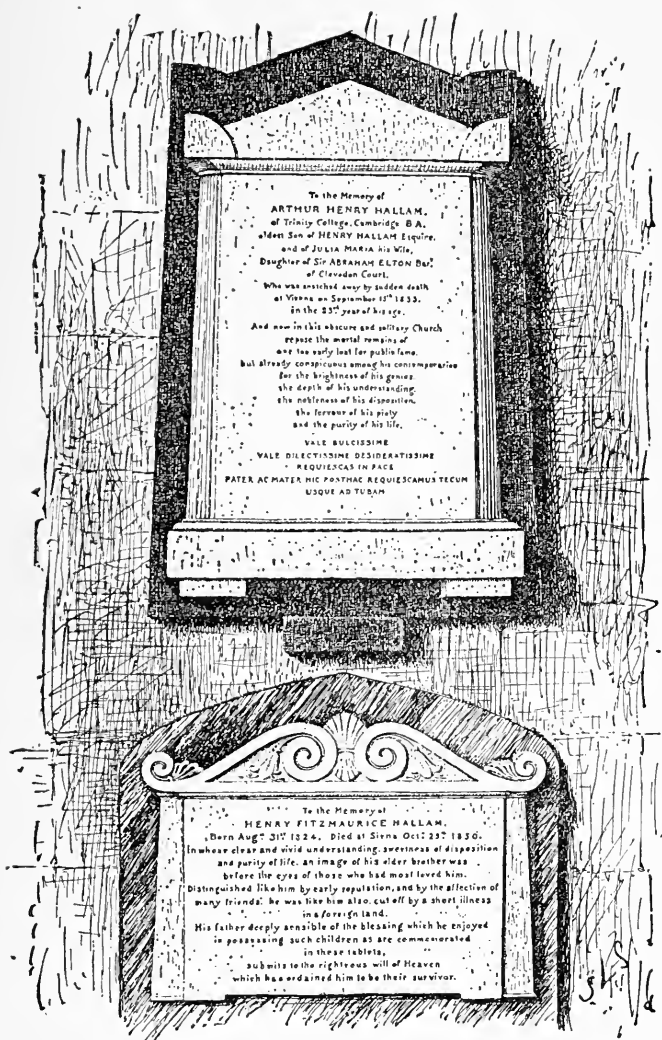 To the Memory of
ARTHUR HENRY HALLAM,
of Trinity College, Cambridge B A,
eldest Son of HENRY HALLAM Esquire,
and of JULIA MARIA his Wife,
Daughter of Sir ABRAHAM ELTON Bart
of Clevedon Court,
Who was snatched away by sudden death
at Vienna on September 15th 1833.
in the 23rd year of his age.
And now in this obscure and solitary Church
repose the mortal remains of
one too early lost for public fame,
but already conspicuous among his contemporaries
for the brightness of his genius
the depth of his understanding,
the nobleness of his disposition,
the fervour of his piety
and the purity of his life,
VALE DULCISSIME
VALE DILECTISSIME DESIDERATISSIME
REQUIESCAS IN PACE
PATER AC MATER HIC POSTHAC REQUIESCAMUS TECUM
USQUE AD TUBAM
To the Memory of
HENRY FITZMAURICE HALLAM,
Born Augst 31st 1824. Died at Siena Octr 25th 1850.
In whose clear and vivid understanding, sweetness of disposition
and purity of life, an image of his elder brother was
before the eyes of those who had most loved him.
Distinguished like him by early reputation, and by the affection of
many friends, he was like him also, cut off by a short illness
in a foreign land.
His father deeply sensible of the blessing which he enjoyed
in possessing such children as are commemorated
in these tablets,
submits to the righteous will of Heaven
which has ordained him to be their survivor.